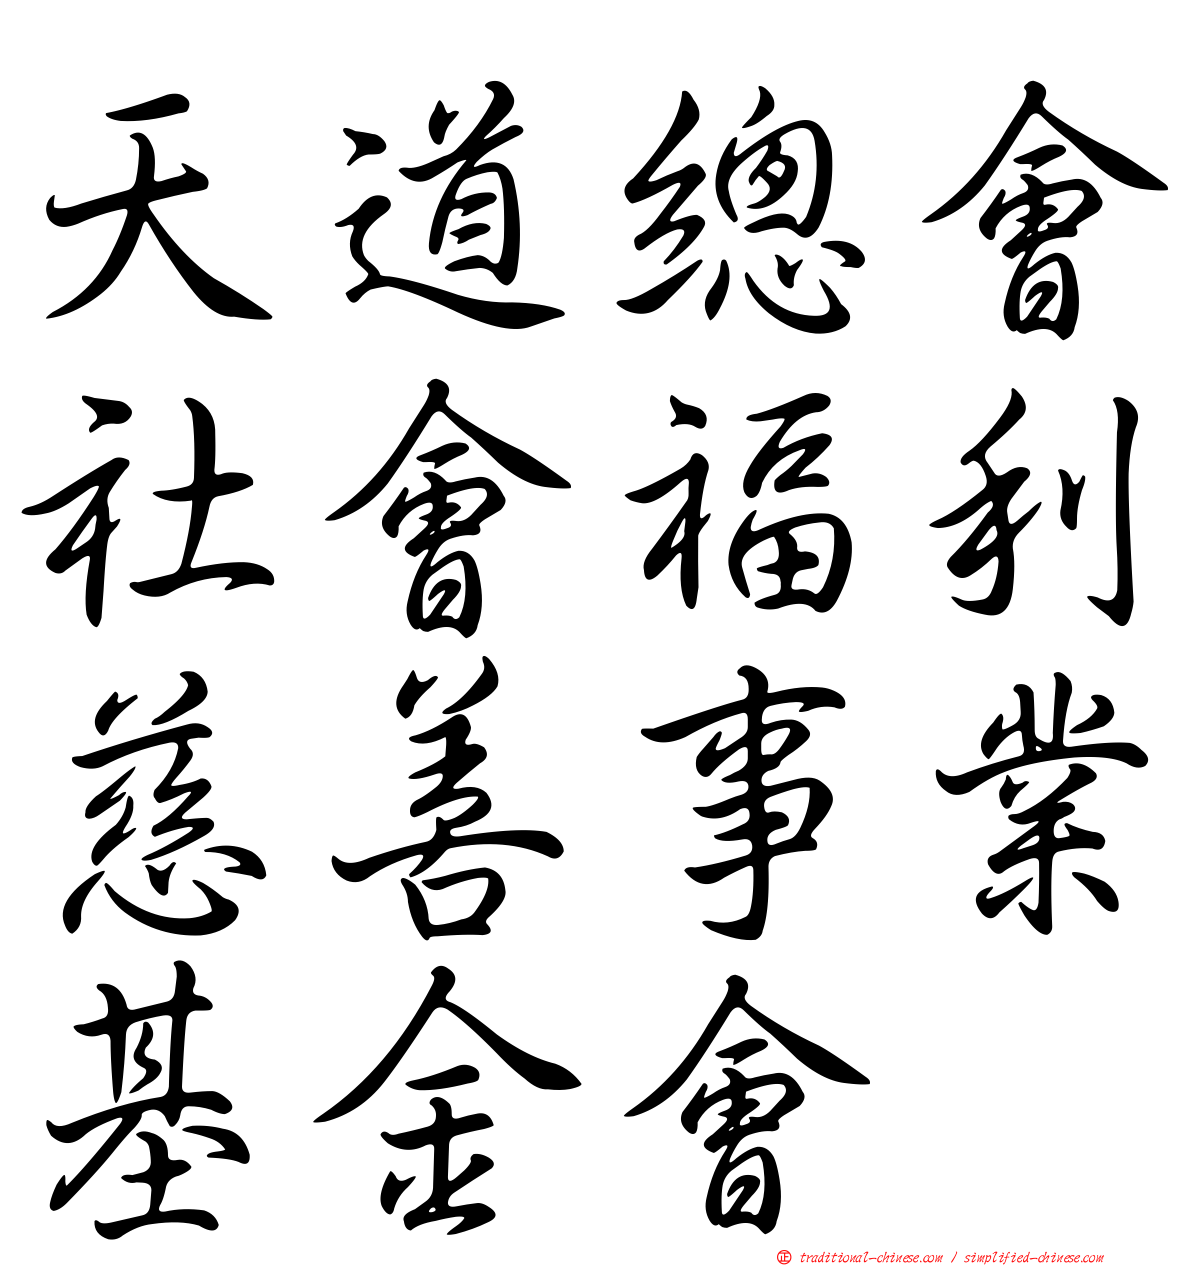 天道總會
社會福利
慈善事業
基金會
正 traditional-chinese.com / simplified-chinese.com